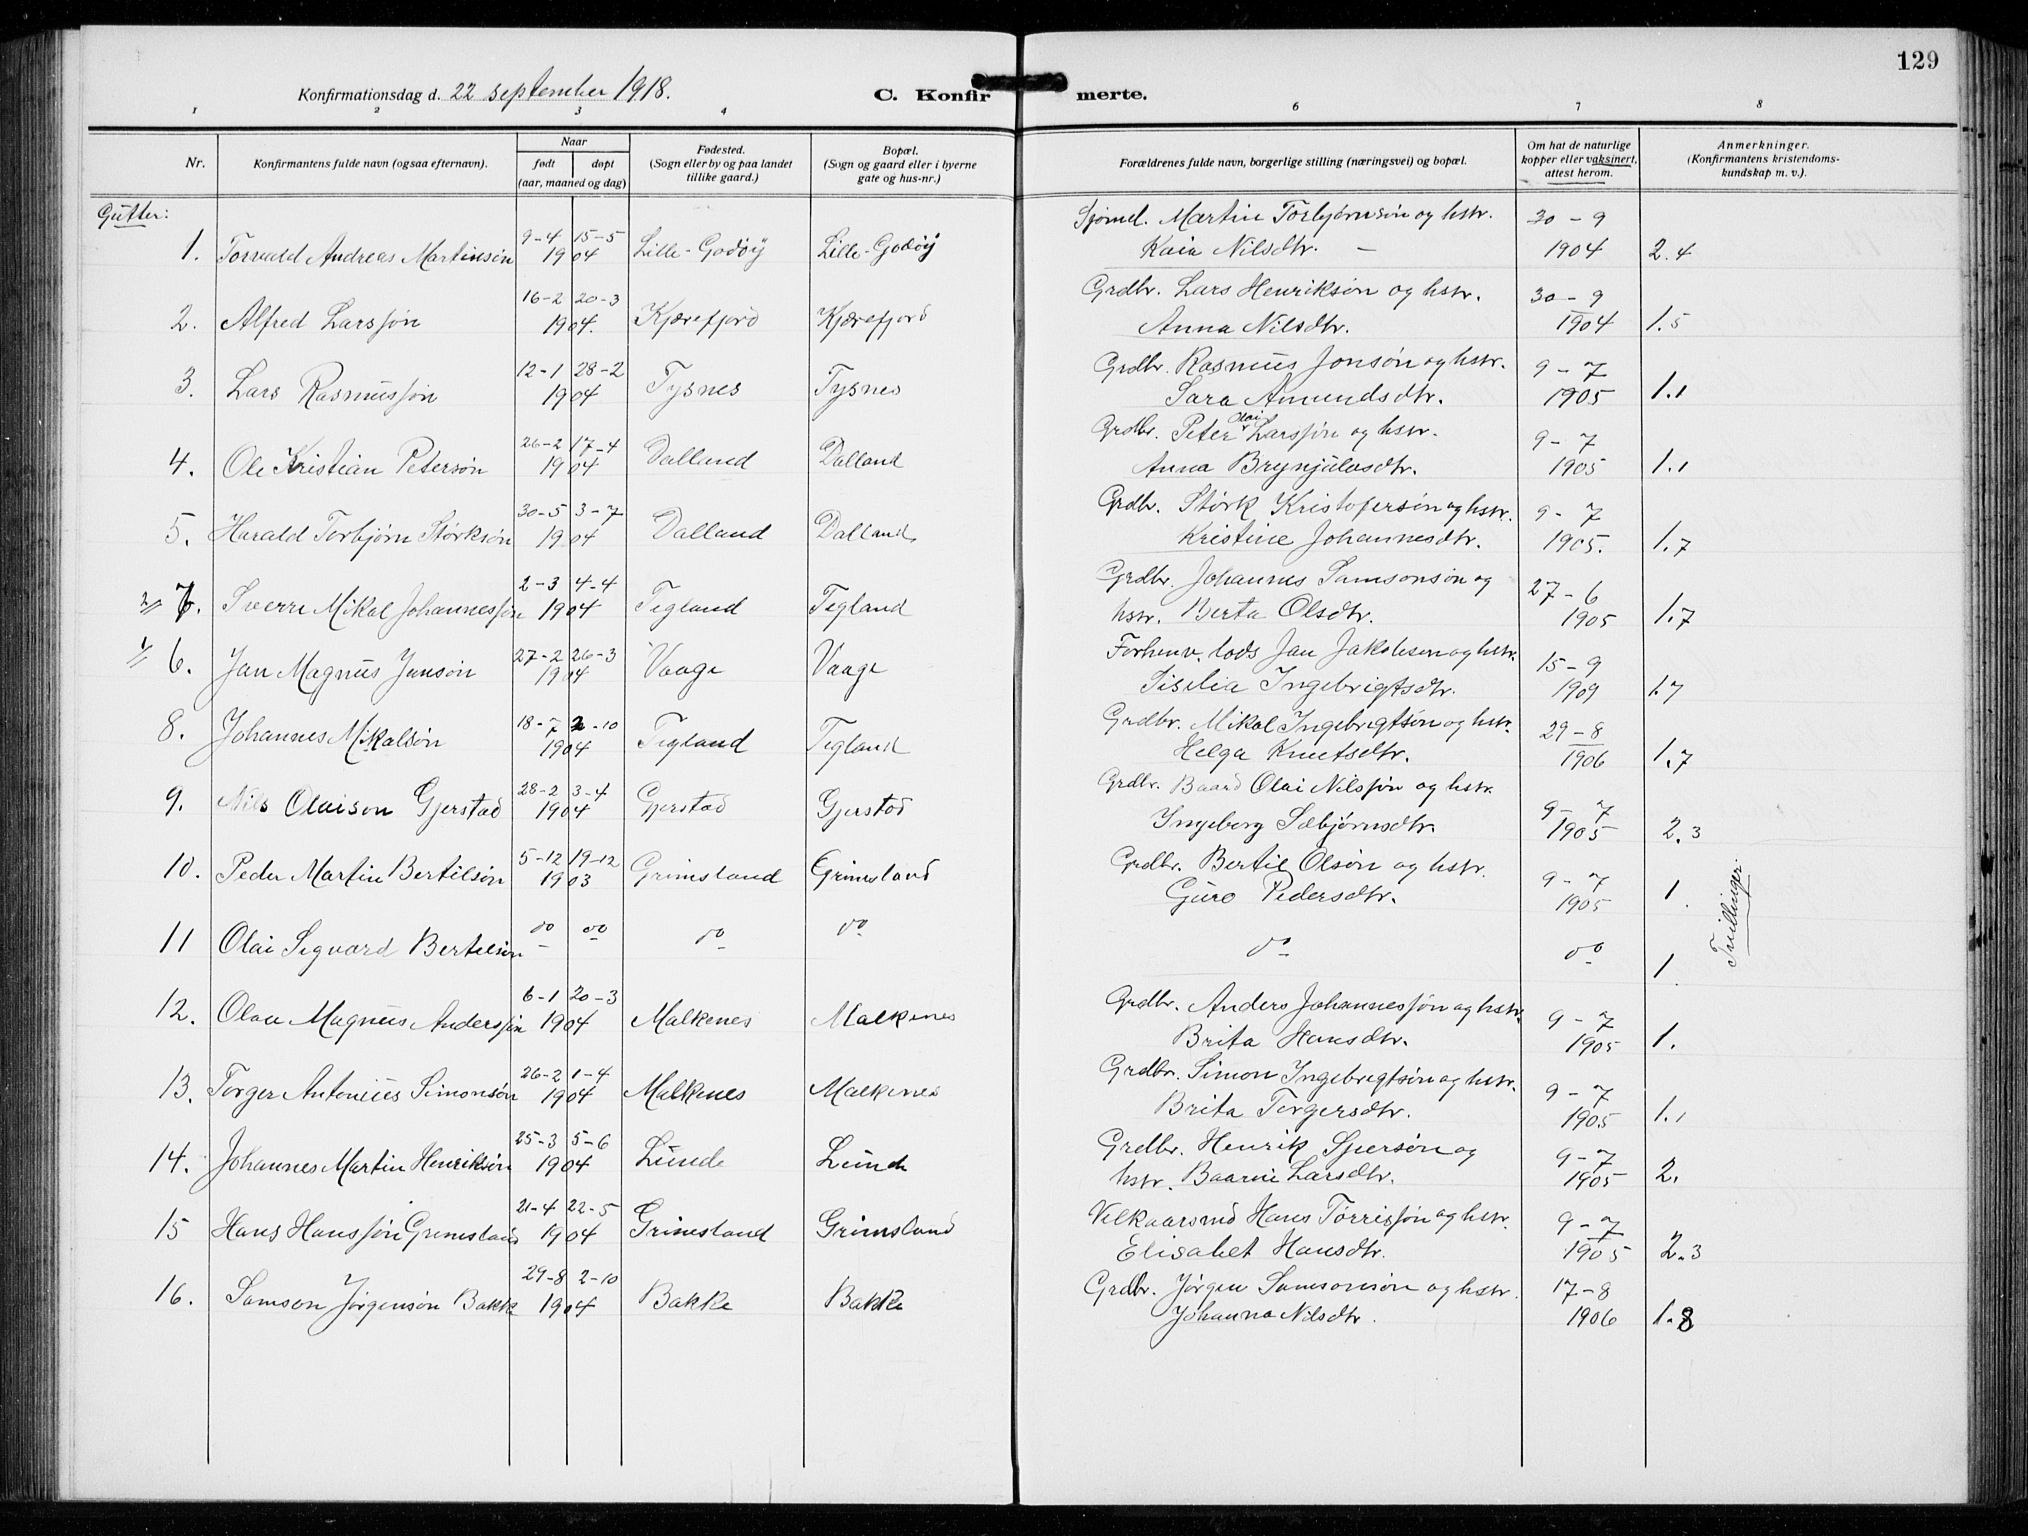 129
Konfirmationsdag d. 22 september 1918.
C. Konfirmerte.
1 2 3 4 5 6 7 8
Nr.
Konfirmantens fulde navn (ogsaa efternavn).
Naar
født døpt
(aar, maaned og dag)
Fødested.
(Sogn eller by og paa landet
tillike gaard.)
Bopæl.
(Sogn og gaard eller i byerne
gate og hus-nr.)
Forældrenes fulde navn, borgerlige stilling (næringsvei) og bopæl.
Om hat de naturlige
kopper eller vaksinert,
attest herom.
Anmerkninger.
(Konfirmantens kristendoms-
kundskap m. v.).
Gutter:
9-4 15-5 Sjømd. Martin Torbjørnsøn og hstr. 30-9
1. Torvald Andreas Martinsøn 1904 Lille-Godøy Lille-Godøy Kaia Nilsdtr. — 1904 2.4
16-2 20-3 Grdbr. Lars Henriksøn og hstr. 30-9
2. Alfred Larssøn 1904. Kjærefjord Kjærefjord Anna Nilsdtr. 1904 1.5
12-1 28-2 Grdbr. Rasmus Jonsøn og hstr. 9-7
3. Lars Rasmussøn 1904 Tysnes Tysnes Sara Amundsdtr. 1905 1.1
26-2 17-4 Grdbr. Peter Olai Larssøn og hstr. 9-7
4. Ole Kristian Petersøn 1904 Dalland Dalland Anna Brynjulvsdtr. 1905 1.1
30-5 3-7 Grdbr. Størk Kristofersøn og hstr. 9-7
5. Harald Torbjørn Størksøn 1904 Dalland Dalland Kristine Johannesdtr. 1905. 1.7
2-3 4-4 Grdbr. Johannes Samsonsøn og 27-6
2/ 7. Sverre Mikal Johannessøn 1904 Tegland Tegland hstr. Berta Olsdtr. 1905 1.7
27-2 26-3 Forhenv. lods Jan Jakobsen og hstr. 15-9
1/ 6. Jan Magnus Jansøn 1904 Vaage Vaage Siselia Ingebrigtsdtr. 1909 1.7
18-7 2-10 Grdbr. Mikal Ingebrigtsøn og hstr. 29-8
8. Johannes Mikalsøn 1904 Tegland Tegland Helga Knutsdtr. 1906 1.7
28-2 3-4 Grdbr. Baard Olai Nilssøn og hstr. 9-7
9. Nils Olaison Gjerstad 1904 Gjerstad Gjerstad Ingeborg Sæbjørnsdtr. 1905 2.3
5-12 19-12 Grdbr. Bertil Olsøn og hstr. 9-7
10. Peder Martin Bertilsøn 1903 Grimsland Grimsland Guro Pedersdtr. 1905 1. Tvillinger.
11 Olai Sigvard Bertilsøn do do do do do do 1
6-1 20-3 Grdbr. Anders Johannessøn og hstr. 9-7
12. Olaa Magnus Anderssøn 1904 Malkenes Malkenes Brita Hansdtr. 1905 1.
26-2 1-4 Grdbr. Simon Ingebrigtsøn og hstr. 9-7
13. Torger Antonius Simonsøn 1904 Malkenes Malkenes Brita Torgersdtr. 1905 1.1
25-3 5-6 Grdbr. Henrik Sjursøn og 9-7
14. Johannes Martin Henriksøn 1904 Lunde Lunde hstr. Baarni Larsdtr. 1905 2.
21-4 22-5 Vilkaarsmd Hans Tørrissøn og hstr. 9-7
15 Hans Hanssøn Grimsland 1904 Grimsland Grimsland Elisabet Hansdtr. 1905 2.3
29-8 2-10 Grdbr. Jørgen Samsonsøn og hstr. 17-8
16. Samson Jørgensøn Bakke 1904 Bakke Bakke Johanna Nilsdtr. 1906 1.8